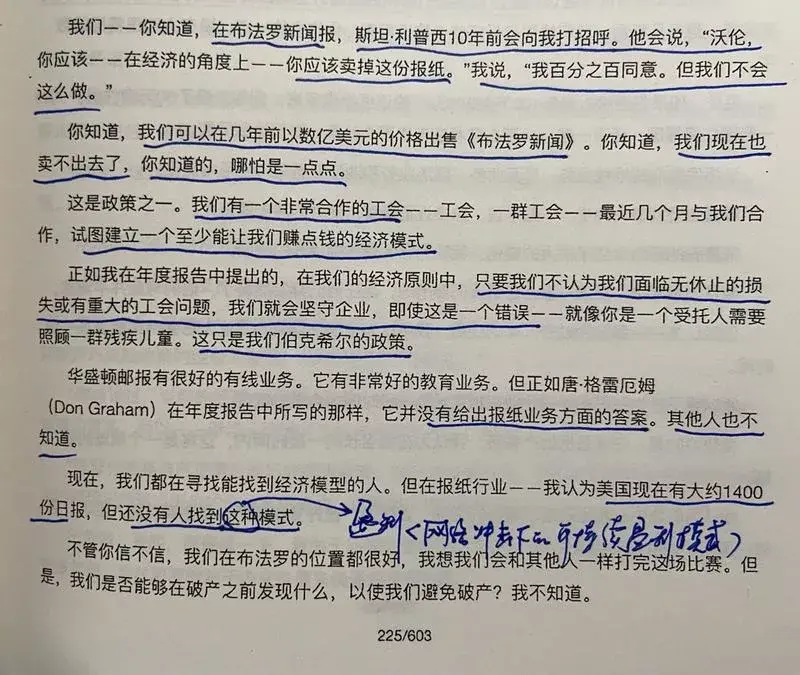 我们——你知道，在布法罗新闻报，斯坦·利普西10年前会向我打招呼。他会说，“沃伦，
你应该——在经济的角度上——你应该卖掉这份报纸。”我说，“我百分之百同意。但我们不会
这么做。”
你知道，我们可以在几年前以数亿美元的价格出售《布法罗新闻》。你知道，我们现在也
卖不出去了，你知道的，哪怕是一点点。
这是政策之一。我们有一个非常合作的工会——工会，一群工会——最近几个月与我们合
作，试图建立一个至少能让我们赚点钱的经济模式。
正如我在年度报告中提出的，在我们的经济原则中，只要我们不认为我们面临无休止的损
失或有重大的工会问题，我们就会坚守企业，即使这是一个错误——就像你是一个受托人需要
照顾一群残疾儿童。这只是我们伯克希尔的政策。
华盛顿邮报有很好的有线业务。它有非常好的教育业务。但正如唐·格雷厄姆
（Don Graham）在年度报告中所写的那样，它并没有给出报纸业务方面的答案。其他人也不
知道。
现在，我们都在寻找能找到经济模型的人。但在报纸行业——我认为美国现在有大约1400
份日报，但还没有人找到这种模式。
（网络冲击下的可持续盈利模式）
不管你信不信，我们在布法罗的位置都很好，我想我们会和其他人一样打完这场比赛。但
是，我们是否能够在破产之前发现什么，以使我们避免破产？我不知道。
225/603